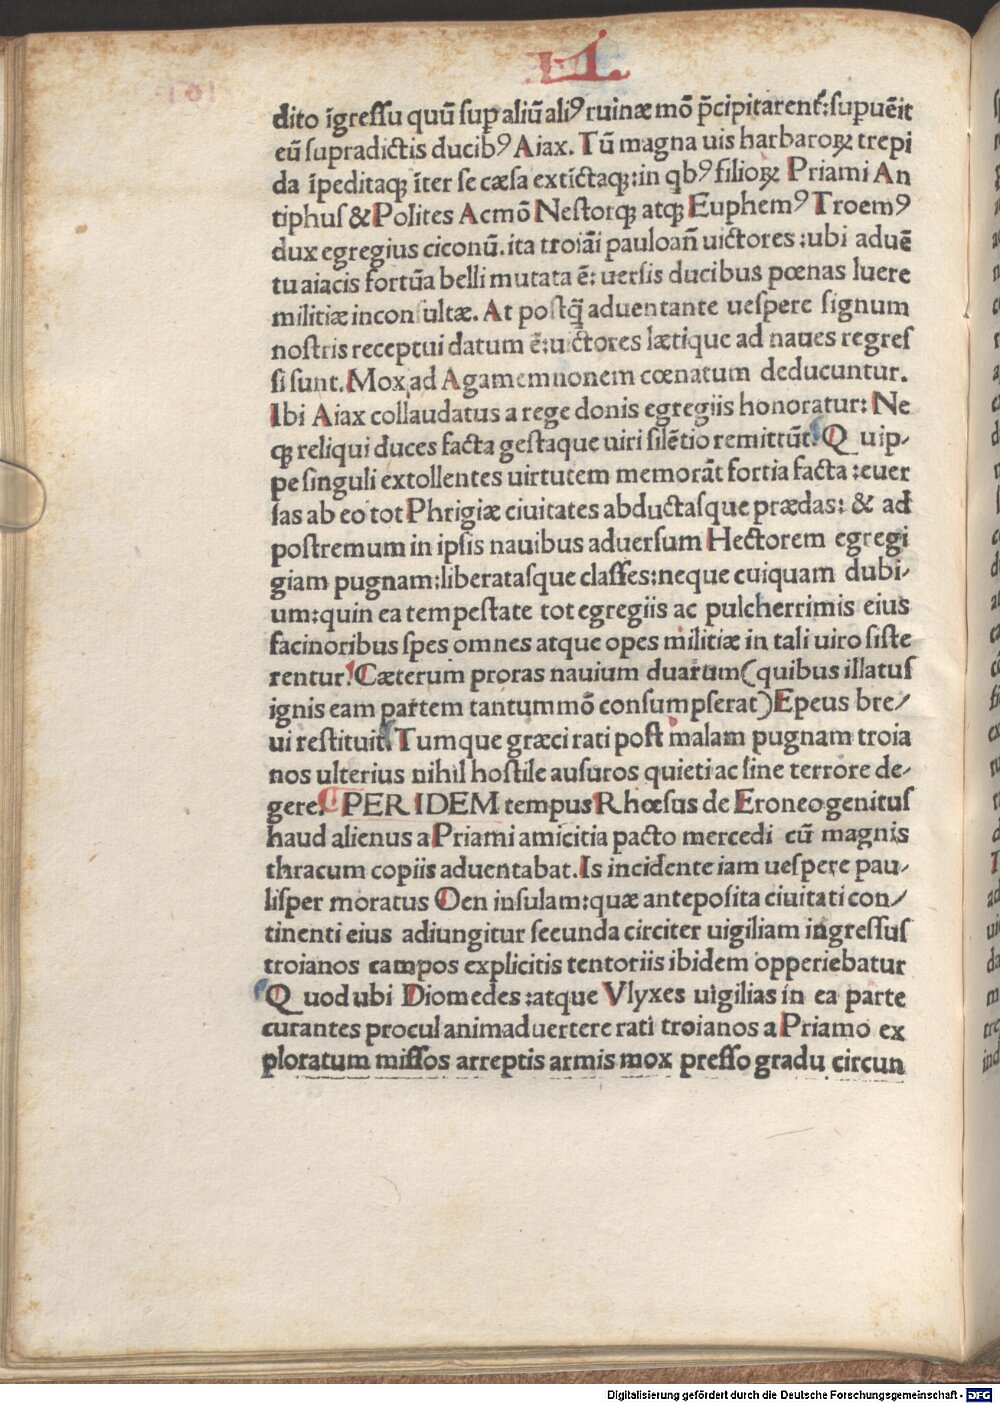 LI.
dito īgreſſu quū ſup aliū aliꝰ ruinæ mō p̄cipitarent᷑:ſupuēit
eū ſupradictis ducibꝰ Aiax. Tū magna uis harbaroꝝ trepi
da īpeditaqꝫ īter ſe cæſa extīctaqꝫ:in qbꝰ filioꝝ Priami An
tiphuſ & Polites Acmō Neſtorqꝫ atqꝫ Euphemꝰ Troemꝰ
dux egregius ciconū. ita troiāi pauloan̄ uictores :ubi aduē
tu aiacis fortūa belli mutata ē: uerſis ducibus pœnas luere
militiæ inconſultæ. At poſtq̄ aduentante ueſpere ſignum
noſtris receptui datum ē:uictores lætique ad naues regreſ
ſi sunt. Mox ad Agamemnonem cœnatum deducuntur.
Ibi Aiax collaudatus a rege donis egregiis honoratur: Ne
qꝫ reliqui duces facta geſtaque uiri ſilētio remittūt. Q uip-
pe ſinguli extollentes uirtutem memorāt fortia facta :euer
ſas ab eo tot Phrigiæ ciuitates abductaſque prædas: & ad
poſtremum in ipſis nauibus aduerſum Hectorem egregi
giam pugnam:liberataſque claſſes:neque cuiquam dubi-
um:quin ea tempeſtate tot egregiis ac pulcherrimis eius
facinoribus ſpes omnes atque opes militiæ in tali uiro ſiſte
rentur. Cæterum proras nauium duarum (quibus illatuſ
ignis eam partem tantummō conſumpſerat) Epeus bre/
ui reſtituit. Tumque græci rati poſt malam pugnam troia
nos ulterius nihil hoſtile auſuros quieti ac ſine terrore de-
gere. PER IDEM tempus Rhœſus de Eroneo genituſ
haud alienus a Priami amicitia pacto mercedi cū magnis
thracum copiis aduentabat. Is incidente iam ueſpere pau-
liſper moratus Oen inſulam:quæ antepoſita ciuitati con/
tinenti eius adiungitur ſecunda circiter uigiliam ingreſſuſ
troianos campos explicitis tentoriis ibidem opperiebatur
Q uod ubi Diomedes :atque Vlyxes uigilias in ea parte
curantes procul animaduertere rati troianos a Priamo ex
ploratum miſſos arreptis armis mox preſſo gradu circun
Digitalisierung gefördert durch die Deutsche Forschungsgemeinschaft - DFG